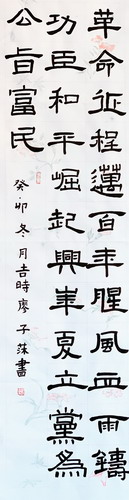 革命征程邁百年腥風血雨鑄
功臣和平崛起興華夏立黨為
公旨富民
癸卯冬月吉時廖子萍書